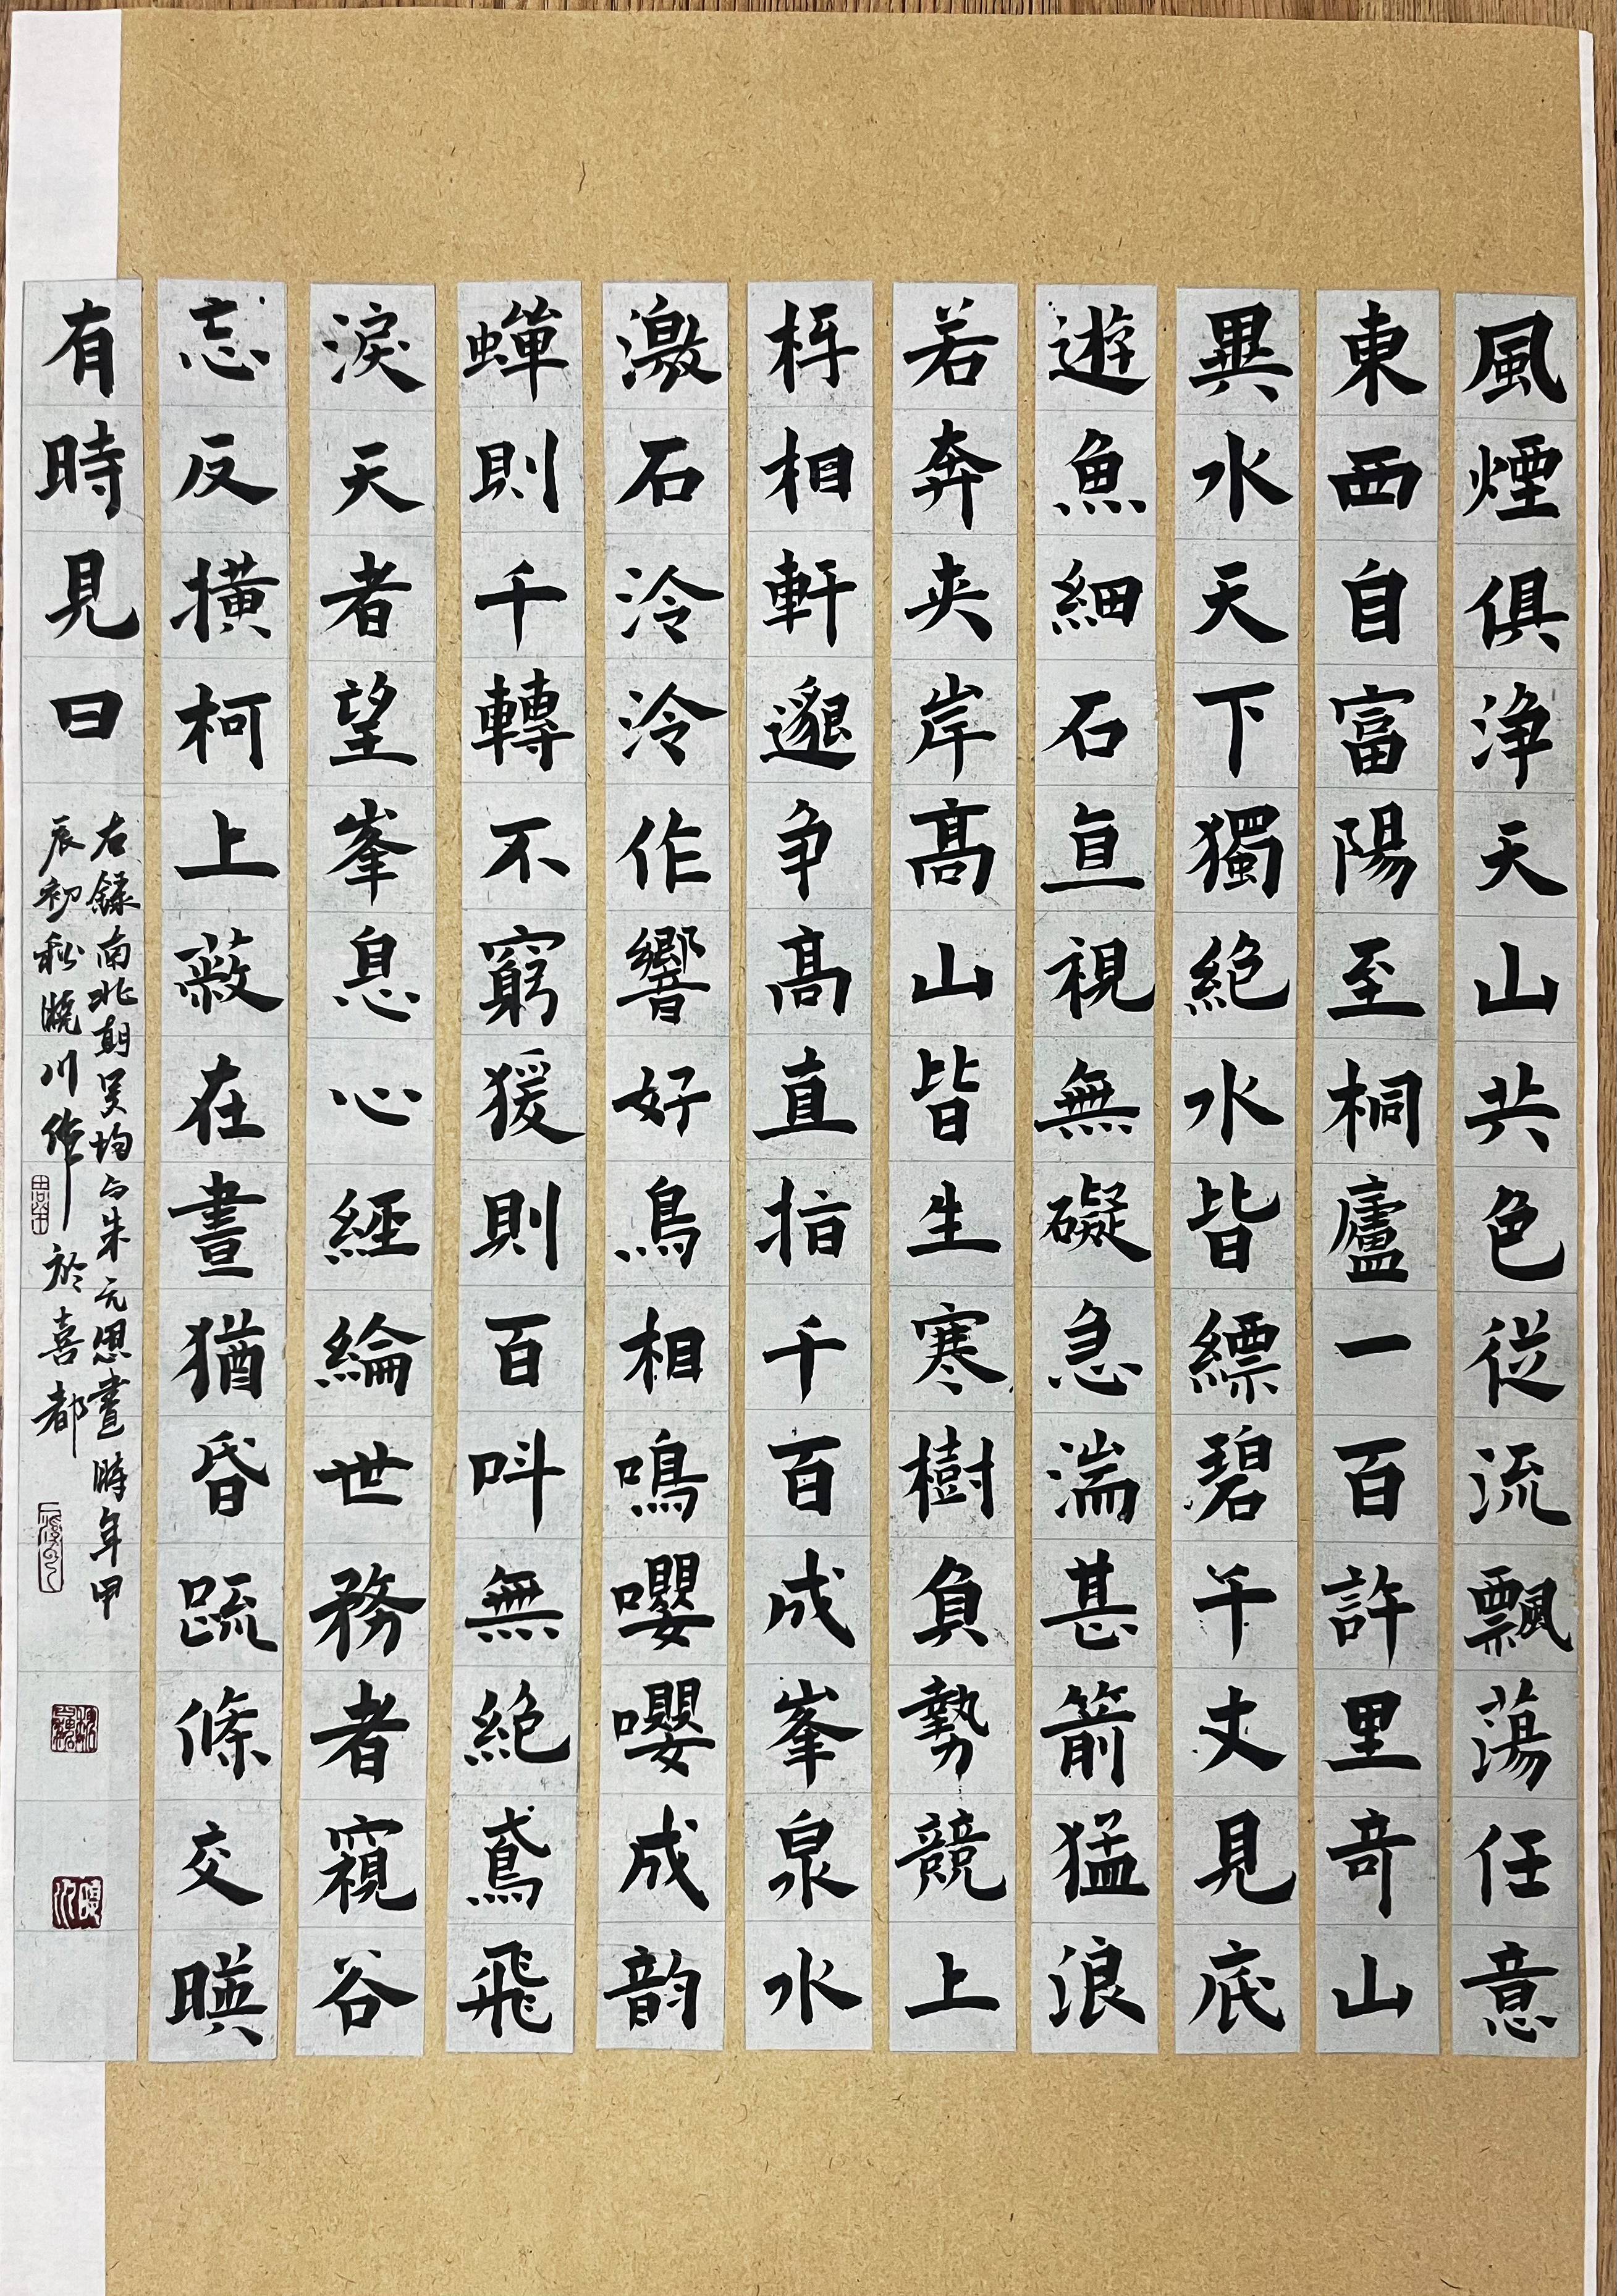 風煙俱浄天山共色從流飄蕩任意
東西自富陽至桐廬一百許里竒山
異水天下獨絶水皆縹碧千丈見底
遊魚細石直視無礙急湍甚箭猛浪
若奔夹岸髙山皆生寒樹負勢競上
相軒邈争髙直指千百成峯泉水
激石泠泠作響好鳥相鳴嚶嚶成韵
蟬則千轉不窮猨則百叫無絶鳶飛
淚天者望峯息心經綸世務者窺谷
忘反横柯上蔽在晝猶昏疏條交暎
有時見日
右録南北朝吴均与朱元思書時年甲
辰初秋曉川作
於喜都